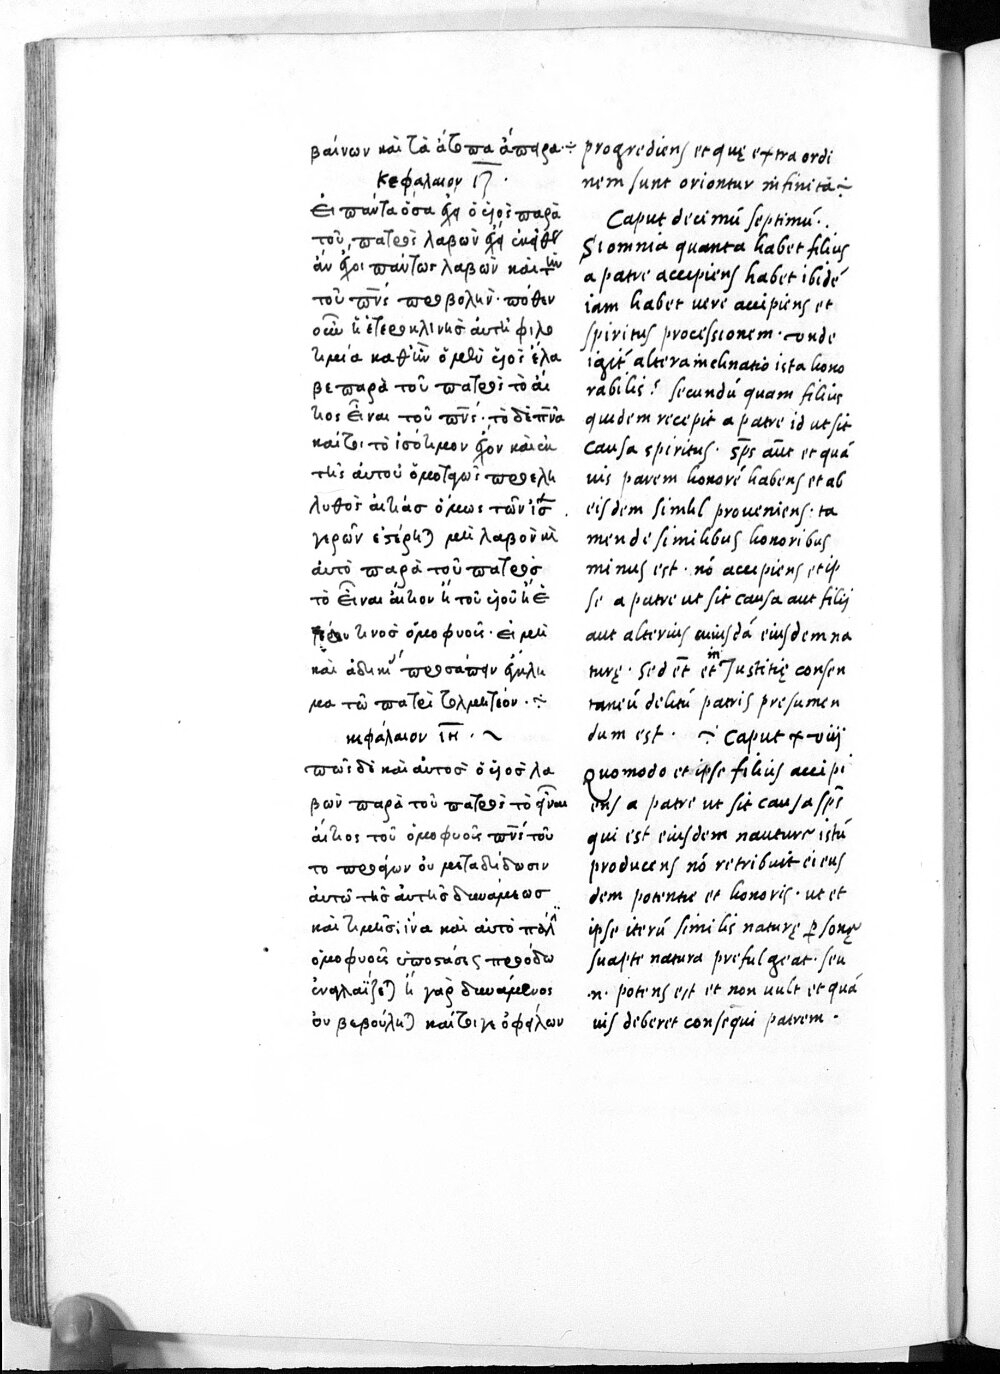 βαίνων καὶ τὰ ἄτοπα ἄπειρα ÷
κεφάλαιον ΙΖ ·
Ει πάντα ὅσα ἔχει ὁ υἱὸς παρὰ
τοῦ πατρὸς λαβὼν ἔχει
ἂν ἔχοι πάντως λαβὼν καὶ τὴν
τοῦ πν̅ς προβολὴν · πόθεν
οὖν ἡ ἑτεροκλινὴς αὐτὴ φιλο
τιμία καθ' ἣν ὁ μὲν υἱὸς ἔλα
βε παρὰ τοῦ πατρὸς τὸ αἴ
τιος εἶναι τοῦ πν̅ς · τὸ δὲ πν̅α
καίτοι τὸ ἰσότιμον ἔχον καὶ ἐκ
τῆς αὐτοῦ ὁμοίως προελη
λυθὸς αἰτίας ὅμως τῶν ἰσ
γερῶν στέρεται μὴ λαβὸν καὶ
αὐτὸ παρὰ τοῦ πατρὸς
τὸ εἶναι αἴτιον ἢ τοῦ υἱοῦ ἢ ἑ
τέρου τινος ὁμοφυοῦς · εἰ μὴ
καὶ ἀδικί προσάπτειν ἔγκλη
μα τῶ πατρὶ τολμητέον · ÷
κεφάλαιον ΙΗ · ~
πῶς δὲ καὶ αὐτὸς ὁ υἱὸς λα
βὼν παρὰ τοῦ πατρὸς τὸ εἶναι
αἴτιος τοῦ ὁμοφυοῦς πν̅ς τοῦ
το προάγων οὐ μεταδίδωσιν
αὐτῶ τῆς αὐτῆς δυνάμεως
καὶ τιμῆς ἵνα καὶ αὐτὸ πάλι
ὁμοφυοῦς ὑποστάσεις προόδω
ἐναγλαΐζεται ἢ γὰρ δυνάμενος
οὐ βεβούληται καίτοι γε ὀφείλων
progrediens et quę extra ordi
nem sunt oriontur infinita ÷
Caput decimū septimū ·
Si omnia quanta habet filius
a patre accipiens habet ibidē
iam habet uere accipiens et
spiritus processionem · unde
igit᷑ altera inclinatio ista hono
rabilis? secundū quam filius
quidem recepit a patre id ut sit
causa spiritus · sp̅s aūt et quā
uis parem honorē habens et ab
eisdem simil proueniens · ta
men de similibus honoribus
minus est · nō accipiens et ip
se a patre ut sit causa aut filij
aut alterius cuiusdā eiusdem na
turę · Sed et̅ et in Justitię consen
taneū delictū patris presumen
dum est · ÷ Caput xviij
Quomodo et ipse filius accipi
ens a patre ut sit causa sp̅s
qui est eiusdem nature istū
producens nō retribuit ei eius
dem potentie et honoris · ut et
ipse iterū similis naturę ꝑsonę
suapte natura prefulgeat · seu
·n· potens est et non uult et quā
uis deberet consequi patrem ·